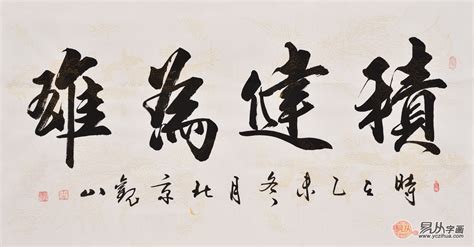 積健為雄
時在乙未冬月北京觀山
易从字画
www.yczihua.com